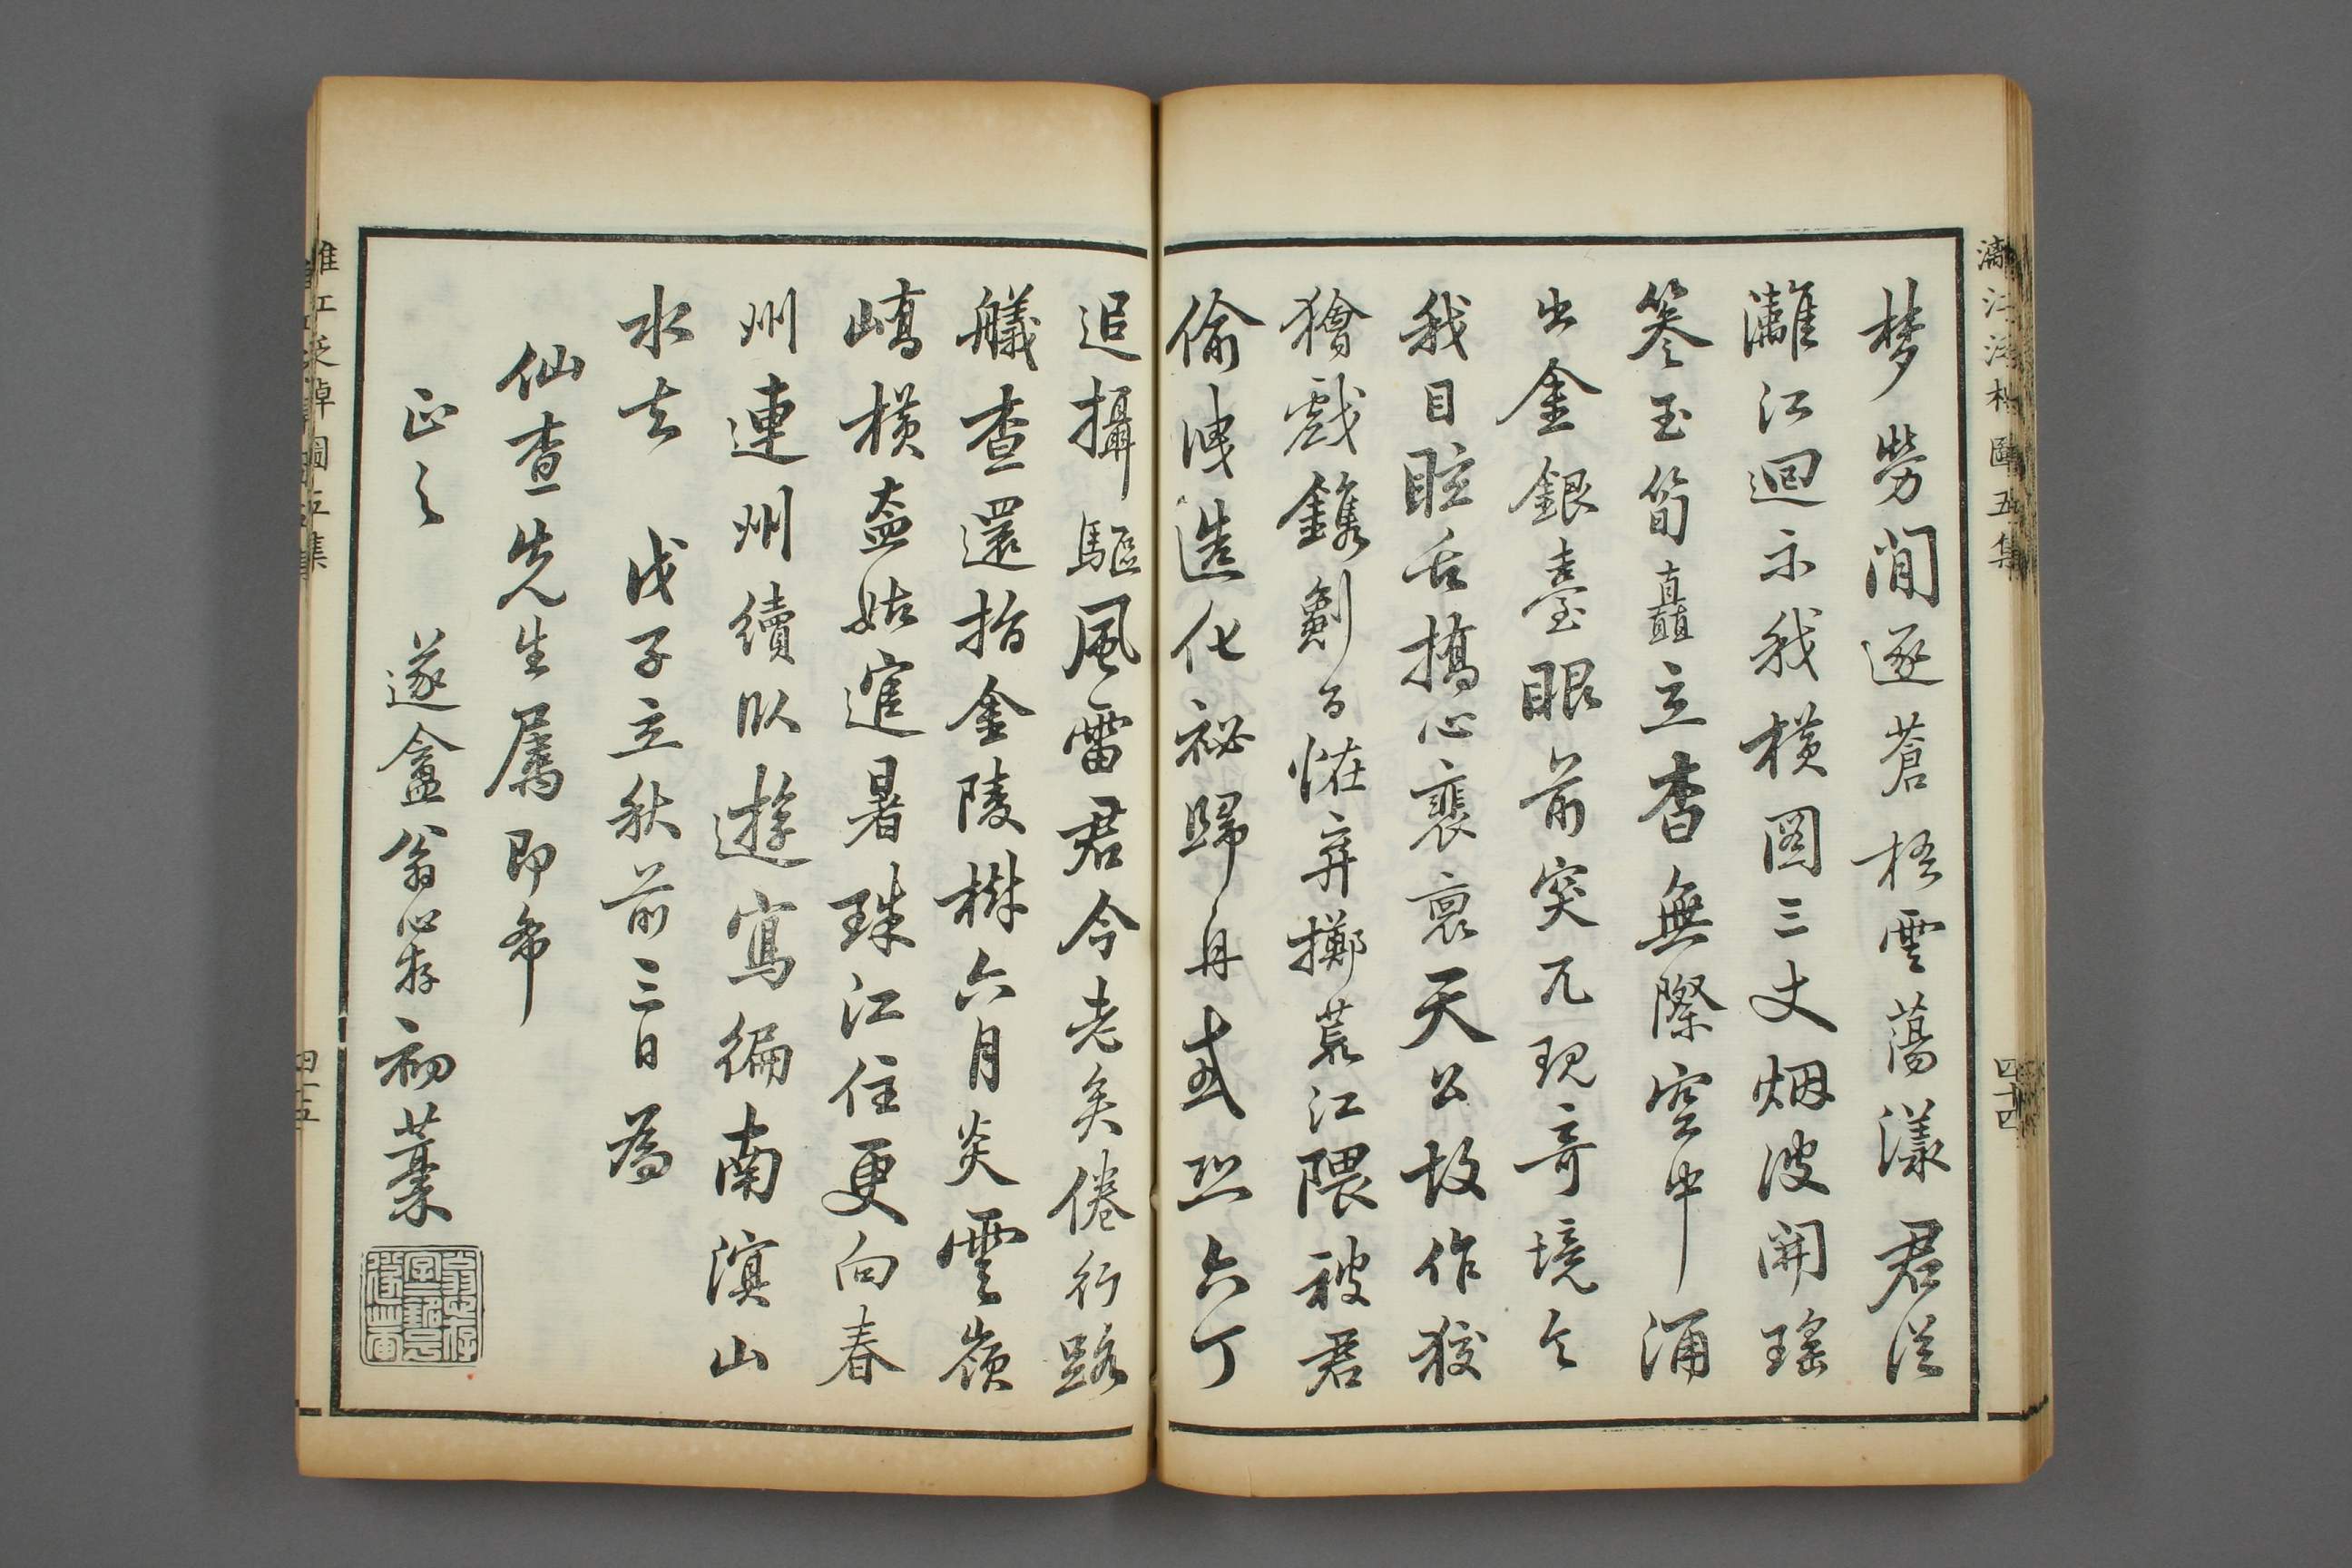 灕江泛棹圖五集
四十四
梦勞闲逐蒼梧雲蕩漾君從
灕江迴示我橫圖三丈烟波開瑤
篸玉筍矗立杳無際空中涌
出金銀臺眼前突兀現奇境令
我目眩舌撟心裴裛天公故作狡
獪戲鐫劖百怪弃擲荒江隈被君
偷洩造化祕歸舟或恐六丁
追攝驅風雷君今老矣倦行路
艤查還指金陵樹六月炎雲嶺
嶠橫盍姑避暑珠江住更向春
州連州續臥遊寫徧南溟山
水去　戊子立秋前三日為
仙查先生屬即希
正之　遂盦翁心存初藁
灕江泛棹圖五集
四十五